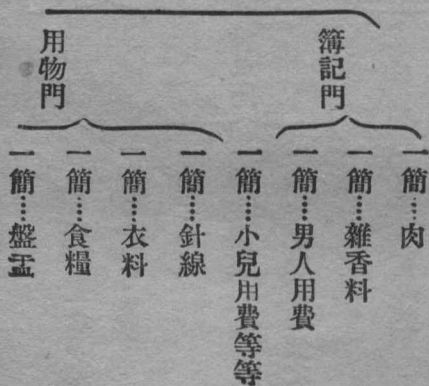 簿記門
一簡…肉
一簡……雜香料
一簡……男人用費
一簡……小兒用費等等
用物門
一簡……針線
一簡……衣料
一簡……食糧
一簡……盤盂